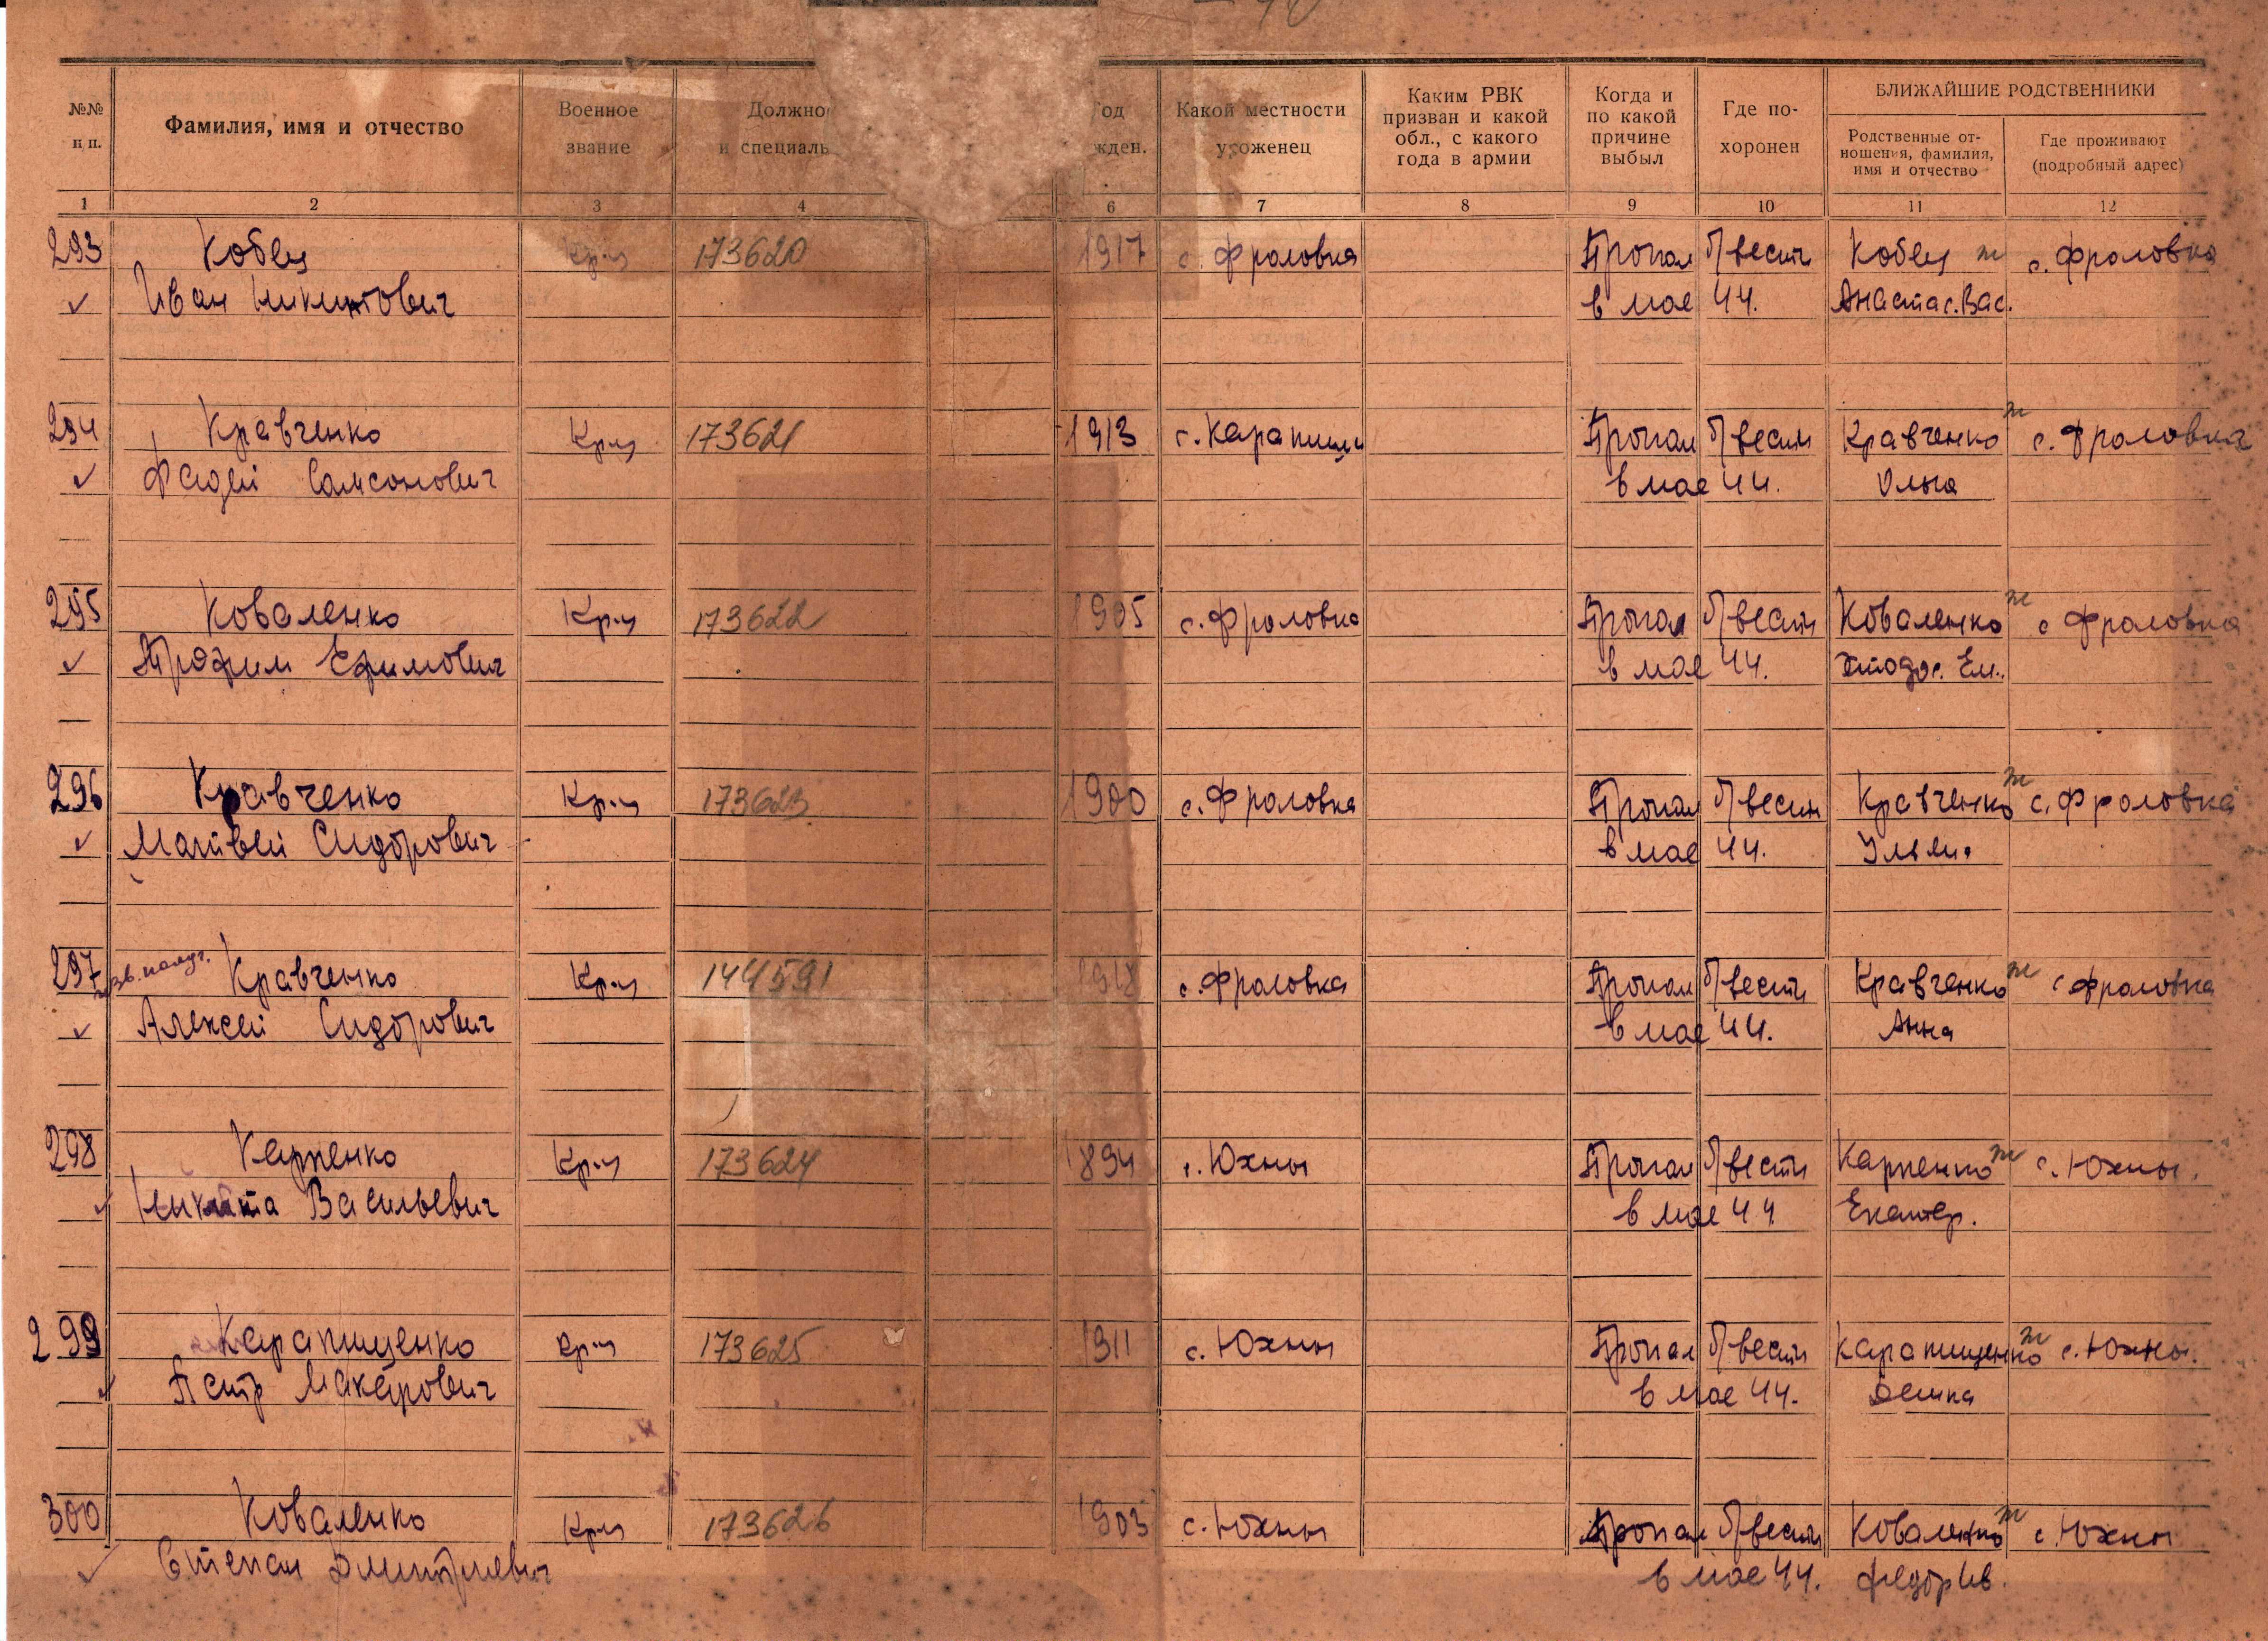 №№ п п.
Фамилия, имя и отчество
Военное звание
Должно
и специаль
од
жден.
Какой местности уроженец
Каким РВК призван и какой обл., с какого года в армии
Когда и по какой причине выбыл
Где по-хоронен
БЛИЖАЙШИЕ РОДСТВЕННИКИ
Родственные от-ношения, фамилия, имя и отчество
Где проживают (подробный адрес)
1 2 3 4 6 7 8 9 10 11 12
293 Кобец Кр-ц 173620 1917 с. Фроловка Пропал б/вести Кобец ж с. Фроловка
Иван Никитович в мае 44. Анастас. Вас.
294 Кравченко Кр-ц 173621 1913 с. Карапиши Пропал б/вести Кравченко ж с. Фроловка
Фадей Самсонович в мае 44. Ольга
295 Коваленко Кр-ц 173622 1905 с. Фроловка Пропал б/вести Коваленко ж с Фроловка
Трофим Ефимович в мае 44.
296 Кравченко Кр-ц 173623 1900 с. Фроловка Пропал б/вести Кравченко ж с. Фроловка
Матвей Сидорович в мае 44.
297 Кравченко Кр-ц 144591 1918 с. Фроловка Пропал б/вести Кравченко ж с Фроловка
Алексей Сидорович в мае 44. Анна
298 Карпенко Кр-ц 173624 1894 с. Юхны Пропал б/вести Карпенко ж с. Юхны.
Никита Васильевич в мае 44 Екатер.
299 Карапищенко Кр-ц 173625 1911 с. Юхны Пропал б/вести Карапищенко ж с. Юхны.
Петр Макарович в мае 44.
300 Коваленко Кр-ц 173626 1903 с. Юхны Пропал б/вести Коваленко ж с. Юхны
Степан Дмитриевич в мае 44. Федор Ив.